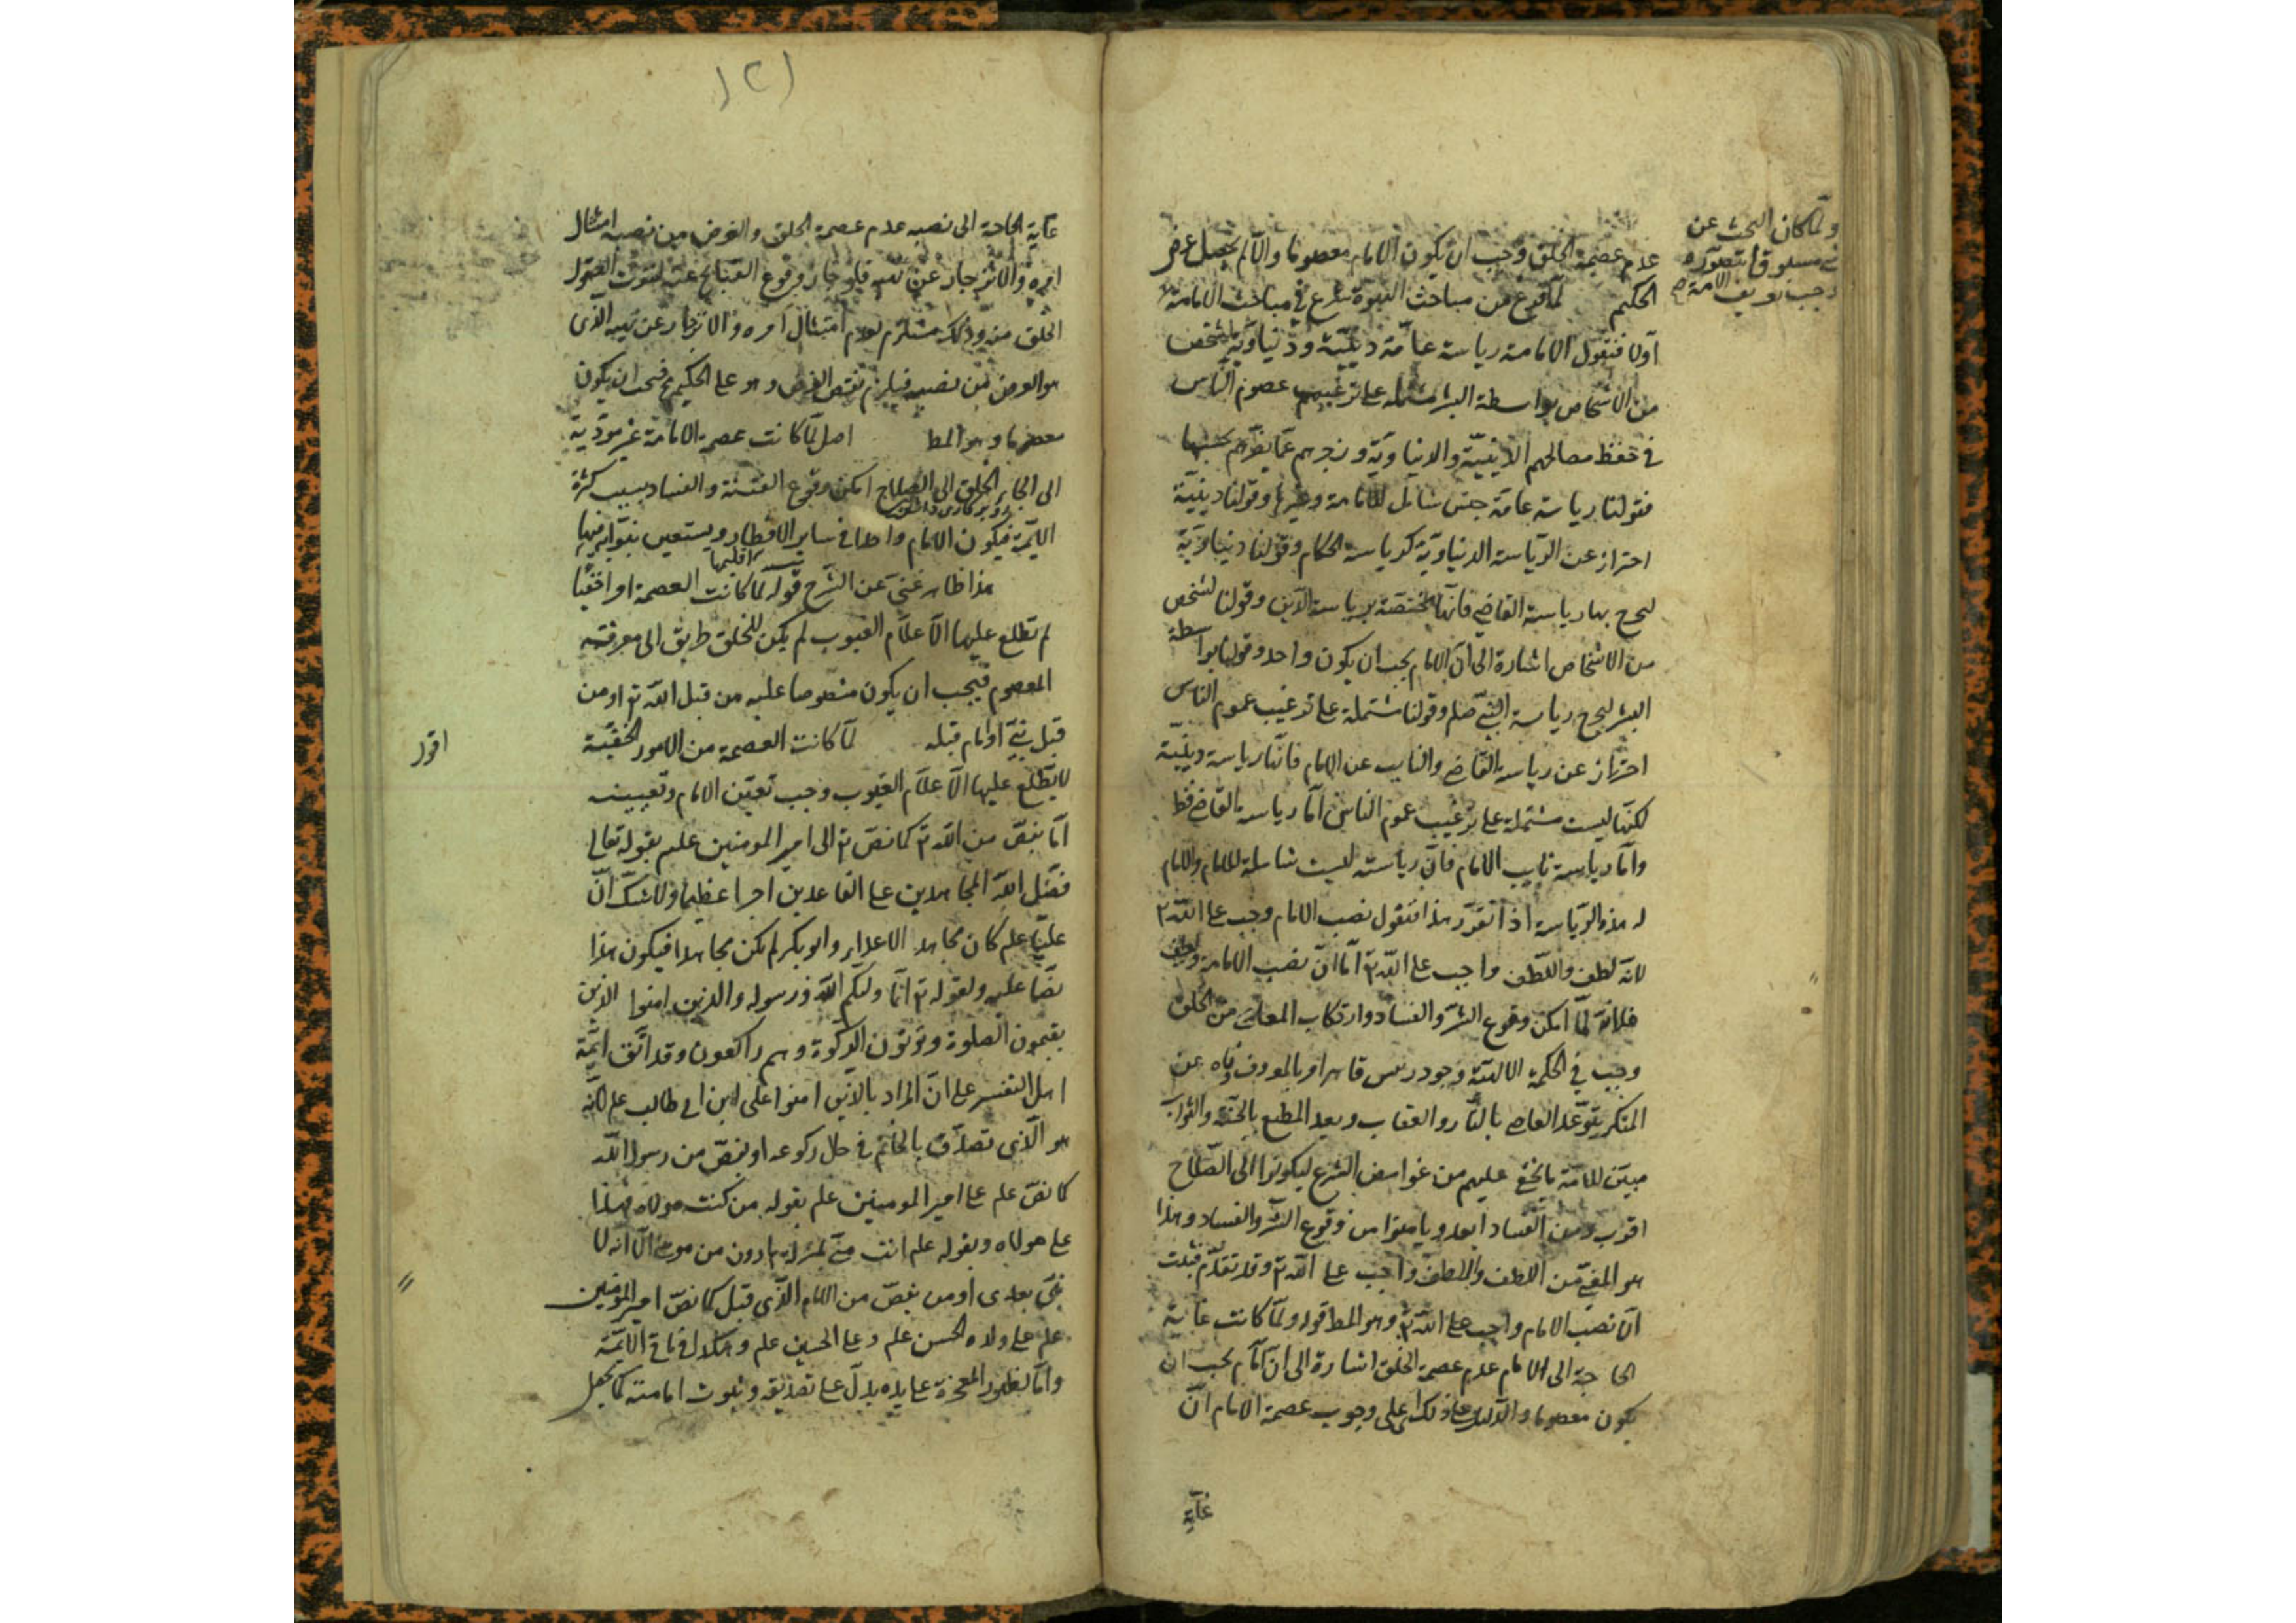 ولما كان البحث عن
شئ مسبوقا بتصوره
وجب تعريف الامامة
عدم عصمة الخلق وجب ان يكون الامام معصوما والا لم يحصل غرض
الحكيم لما فرغ من مباحث النبوة شرع في مباحث الامامة
اولا فنقول الامامة رياسة عامة دينية ودنياوية لشخص
من الاشخاص بواسطة البشر مشتملة على ترغيب عموم الناس
في حفظ مصالحهم الدينية والدنياوية وزجرهم عما يضرهم بحسبها
فقولنا رياسة عامة جنس شامل للامامة وغيرها وقولنا دينية
احتراز عن الرياسة الدنياوية كرياسة الحكام وقولنا دنياوية
ليخرج بها رياسة القاضي فانها مختصة برياسة الدين وقولنا لشخص
من الاشخاص اشارة الى ان الامام يجب ان يكون واحد وقولنا بواسطة
البشر ليخرج رياسة النبي صلم وقولنا مشتملة على ترغيب عموم الناس
احتراز عن رياسة القاضي والنايب عن الامام فانها رياسة دينية
لكنها ليست مشتملة على ترغيب عموم الناس اما رياسة القاضي فظ
واما رياسة نايب الامام فان رياسته ليست شاملة للامام والامام
له هذه الرياسة اذا تقرر هذا فنقول نصب الامام وجب على الله تع
لانه لطف واللطف واجب على الله تع اما ان نصب الامامة لطف
فلانه لما امكن وقوع الشر والفساد وارتكاب المعاصي من الخلق
وجب في الحكمة الالهية وجود رئيس قاهر امر بالمعروف ناه عن
المنكر يتوعد العاصي بالنار والعقاب ويعد المطيع بالجنة والثواب
مبين للامة ما يخفى عليهم من غوامض الشرع ليكونوا الى الصلاح
اقرب ومن الفساد ابعد ويامنوا من وقوع الشر والفساد وهذا
هو المعني من اللطف واللطف واجب على الله تع وقد تقدم فثبت
ان نصب الامام واجب على الله تع وهو المط قوله ولما كانت غاية
الحاجة الى الامام عدم عصمة الخلق اشارة الى ان الامام يجب ان
يكون معصوما والدليل على ذلك اى على وجوب عصمة الامام ان
غاية
١٢١
غاية الحاجة الى نصبه عدم عصمة الخلق والغرض من نصبه امتثال
امره والانزجار عن نهيه فلو جاز وقوع القبائح عنه
الخلق منه وذلك مستلزم لعدم امتثال امره والانزجار عن نهيه الذى
هو الغرض من نصبه فيلزم نقض الغرض وهو على الحكيم مح فيجب ان يكون
معصوما وهو المط اصل لما كانت عصمة الامامة غير مؤدية
الى الجاء الخلق الى الصلاح امكن وقوع الفتنة والفساد بسبب كثرة
الايمة فيكون الامام واحدا في ساير الاقطار ويستعين بنوابه فيها
اقليمها
هذا ظاهر غني عن الشرح قوله لما كانت العصمة امرا خفيا
لم تطلع عليها الا علام الغيوب لم يكن للخلق طريق الى معرفته
المعصوم فيجب ان يكون منصوصا عليه من قبل الله تع او من
قبل نبي او امام قبله لما كانت العصمة من الامور الخفية
اقول
لا يطلع عليها الا علام الغيوب وجب تعين الامام وتعيينه
اما بنص من الله تع كما نص تع الى امير المومنين علم بقوله تعالى
فضل الله المجاهدين على القاعدين اجرا عظيما ولا شك ان
عليا علم كان مجاهد الاعداء وابو بكر لم يكن مجاهدا فيكون هذا
نصا عليه ولقوله تع انما وليكم الله ورسوله والذين امنوا الذين
يقيمون الصلوة ويؤتون الزكوة وهم راكعون وقد اتفق ائمة
اهل التفسير على ان المراد بالذين امنوا على ابن ابي طالب علم لانه
هو الذى تصدق بالخاتم في حال ركوعه او بنص من رسول الله
كما نص علم على امير المومنين علم بقوله من كنت مولاه فهذا
على مولاه وبقوله علم انت مني بمنزلة هارون من موسى الا انه لا
نبي بعدى او من بنص من الامام الذى قبل كما نص امير المومنين
علم على ولده الحسن علم وعلى الحسين علم وهكذا في باقي الائمة
واما بظهور المعجزة على يده يدل على تصديقه وثبوت امامته كما يحصل